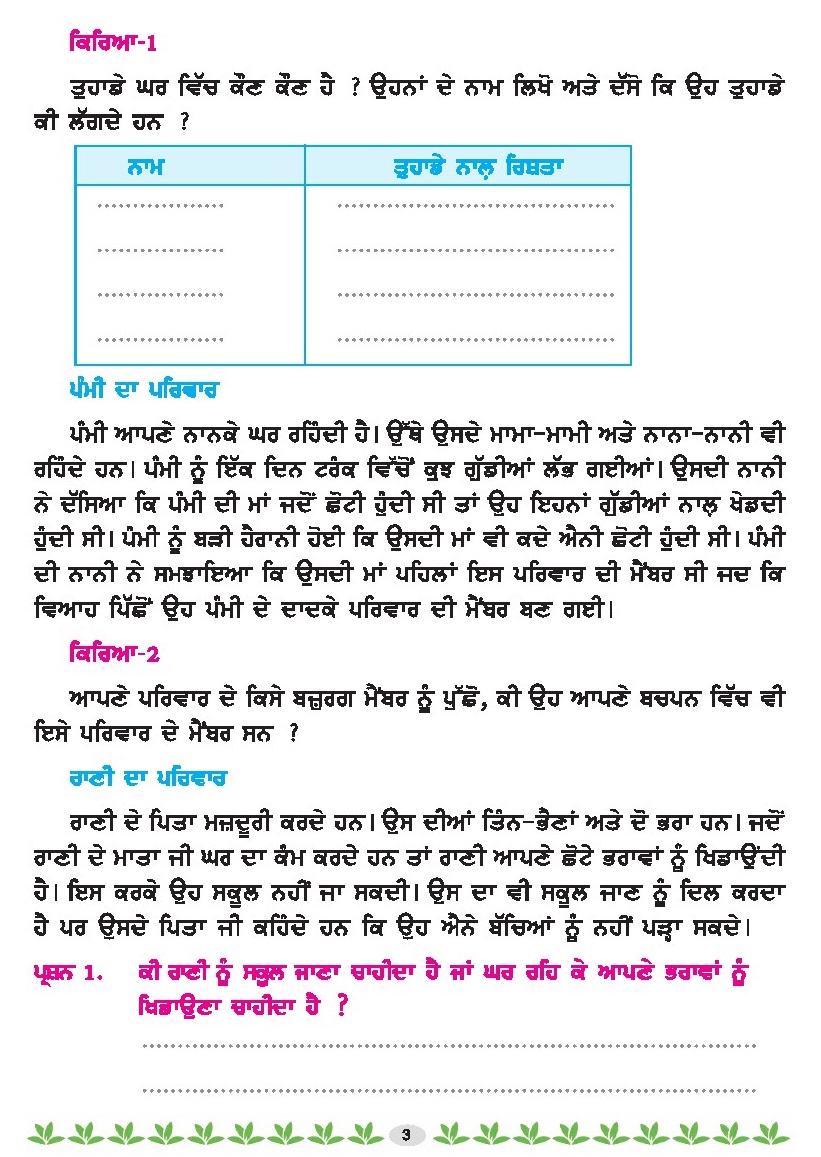 ਕਿਰਿਆ-1
ਤੁਹਾਡੇ ਘਰ ਵਿੱਚ ਕੌਣ ਕੌਣ ਹੈ ? ਉਹਨਾਂ ਦੇ ਨਾਮ ਲਿਖੋ ਅਤੇ ਦੱਸੋ ਕਿ ਉਹ ਤੁਹਾਡੇ
ਕੀ ਲੱਗਦੇ ਹਨ ?
ਨਾਮ ਤੁਹਾਡੇ ਨਾਲ਼ ਰਿਸ਼ਤਾ
.................. .......................................
.................. .......................................
.................. .......................................
.................. .......................................
ਪੰਮੀ ਦਾ ਪਰਿਵਾਰ
ਪੰਮੀ ਆਪਣੇ ਨਾਨਕੇ ਘਰ ਰਹਿੰਦੀ ਹੈ। ਉੱਥੇ ਉਸਦੇ ਮਾਮਾ-ਮਾਮੀ ਅਤੇ ਨਾਨਾ-ਨਾਨੀ ਵੀ
ਰਹਿੰਦੇ ਹਨ। ਪੰਮੀ ਨੂੰ ਇੱਕ ਦਿਨ ਟਰੰਕ ਵਿੱਚੋਂ ਕੁਝ ਗੁੱਡੀਆਂ ਲੱਭ ਗਈਆਂ। ਉਸਦੀ ਨਾਨੀ
ਨੇ ਦੱਸਿਆ ਕਿ ਪੰਮੀ ਦੀ ਮਾਂ ਜਦੋਂ ਛੋਟੀ ਹੁੰਦੀ ਸੀ ਤਾਂ ਉਹ ਇਹਨਾਂ ਗੁੱਡੀਆਂ ਨਾਲ਼ ਖੇਡਦੀ
ਹੁੰਦੀ ਸੀ। ਪੰਮੀ ਨੂੰ ਬੜੀ ਹੈਰਾਨੀ ਹੋਈ ਕਿ ਉਸਦੀ ਮਾਂ ਵੀ ਕਦੇ ਐਨੀ ਛੋਟੀ ਹੁੰਦੀ ਸੀ। ਪੰਮੀ
ਦੀ ਨਾਨੀ ਨੇ ਸਮਝਾਇਆ ਕਿ ਉਸਦੀ ਮਾਂ ਪਹਿਲਾਂ ਇਸ ਪਰਿਵਾਰ ਦੀ ਮੈਂਬਰ ਸੀ ਜਦ ਕਿ
ਵਿਆਹ ਪਿੱਛੋਂ ਉਹ ਪੰਮੀ ਦੇ ਦਾਦਕੇ ਪਰਿਵਾਰ ਦੀ ਮੈਂਬਰ ਬਣ ਗਈ।
ਕਿਰਿਆ-2
ਆਪਣੇ ਪਰਿਵਾਰ ਦੇ ਕਿਸੇ ਬਜ਼ੁਰਗ ਮੈਂਬਰ ਨੂੰ ਪੁੱਛੋ, ਕੀ ਉਹ ਆਪਣੇ ਬਚਪਨ ਵਿੱਚ ਵੀ
ਇਸੇ ਪਰਿਵਾਰ ਦੇ ਮੈਂਬਰ ਸਨ ?
ਰਾਣੀ ਦਾ ਪਰਿਵਾਰ
ਰਾਣੀ ਦੇ ਪਿਤਾ ਮਜ਼ਦੂਰੀ ਕਰਦੇ ਹਨ। ਉਸ ਦੀਆਂ ਤਿੰਨ-ਭੈਣਾਂ ਅਤੇ ਦੋ ਭਰਾ ਹਨ। ਜਦੋਂ
ਰਾਣੀ ਦੇ ਮਾਤਾ ਜੀ ਘਰ ਦਾ ਕੰਮ ਕਰਦੇ ਹਨ ਤਾਂ ਰਾਣੀ ਆਪਣੇ ਛੋਟੇ ਭਰਾਵਾਂ ਨੂੰ ਖਿਡਾਉਂਦੀ
ਹੈ। ਇਸ ਕਰਕੇ ਉਹ ਸਕੂਲ ਨਹੀਂ ਜਾ ਸਕਦੀ। ਉਸ ਦਾ ਵੀ ਸਕੂਲ ਜਾਣ ਨੂੰ ਦਿਲ ਕਰਦਾ
ਹੈ ਪਰ ਉਸਦੇ ਪਿਤਾ ਜੀ ਕਹਿੰਦੇ ਹਨ ਕਿ ਉਹ ਐਨੇ ਬੱਚਿਆਂ ਨੂੰ ਨਹੀਂ ਪੜ੍ਹਾ ਸਕਦੇ।
ਪ੍ਰਸ਼ਨ 1. ਕੀ ਰਾਣੀ ਨੂੰ ਸਕੂਲ ਜਾਣਾ ਚਾਹੀਦਾ ਹੈ ਜਾਂ ਘਰ ਰਹਿ ਕੇ ਆਪਣੇ ਭਰਾਵਾਂ ਨੂੰ
ਖਿਡਾਉਣਾ ਚਾਹੀਦਾ ਹੈ ?
........................................................................................
........................................................................................
3